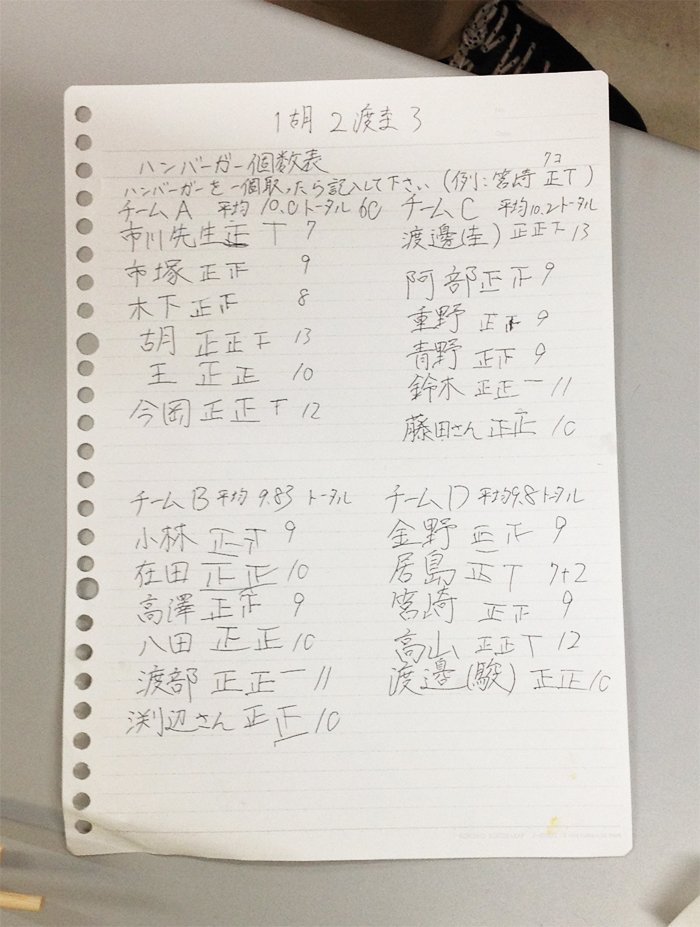 1 胡 2 渡圭 3
ハンバーガー個数表
ハンバーガーを一個取ったら記入して下さい (例:宮崎 正丅)
7コ
チームA 平均 10.0 トータル 60
市川先生 正 丅 7
市塚 正正 9
木下 正正 8
胡 正正下 13
王 正正 10
今岡 正正丅 12
チームC 平均10.2 トータル
渡邊(圭) 正正下 13
阿部 正正 9
重野 正正 9
青野 正正 9
鈴木 正正一 11
藤田さん 正正 10
チームB 平均 9.83 トータル
小林 正正 9
在田 正正 10
高澤 正正 9
八田 正正 10
渡部 正正一 11
渕辺さん 正正 10
チームD 平均9.8 トータル
金野 正正 9
居島 正丅 7+2
宮崎 正正 9
高山 正正丅 12
渡邊(駿) 正正 10